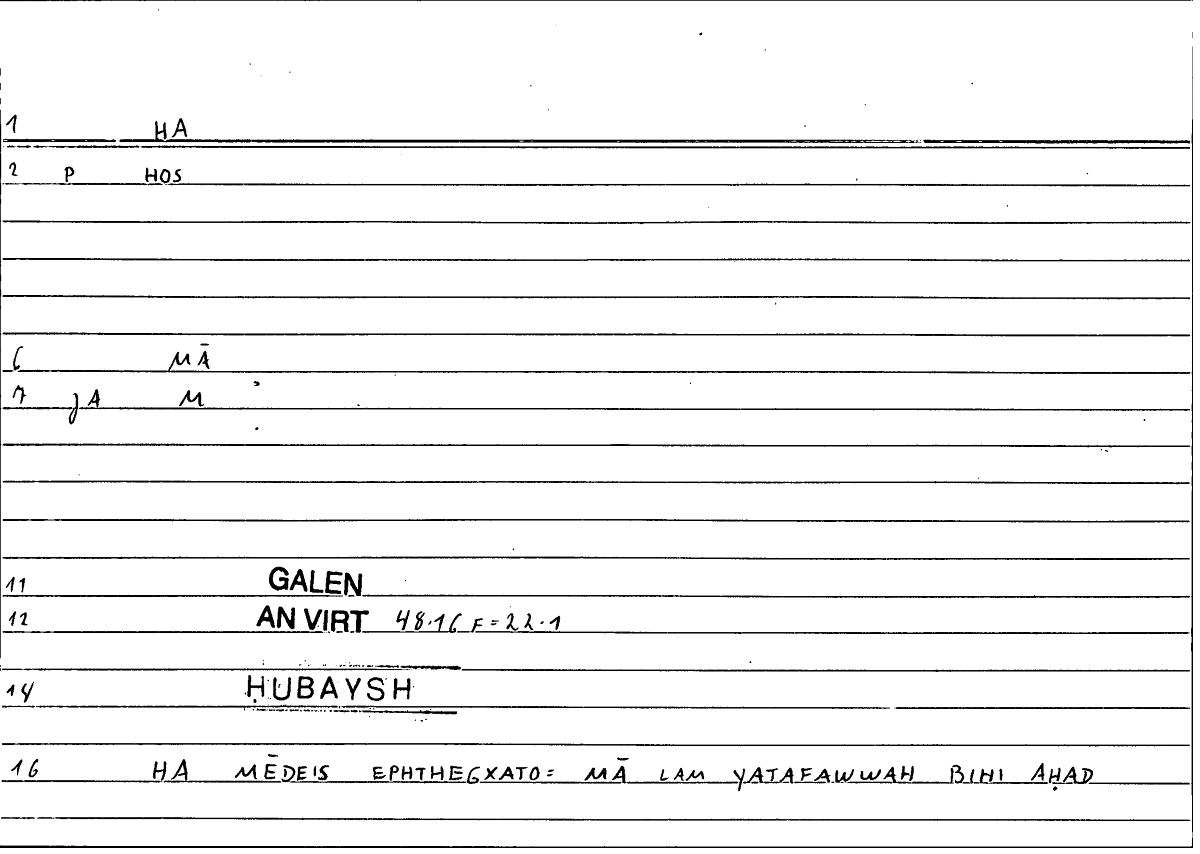 1 HA
2 P HOS
6 MĀ
7 JA M
11 GALEN
12 AN VIRT 48.16 F = 22.1
14 ḤUBAYSH
16 HA MĒDEIS EPHTHEGXATO = MĀ LAM YATAFAWWAH BIHI AḤAD